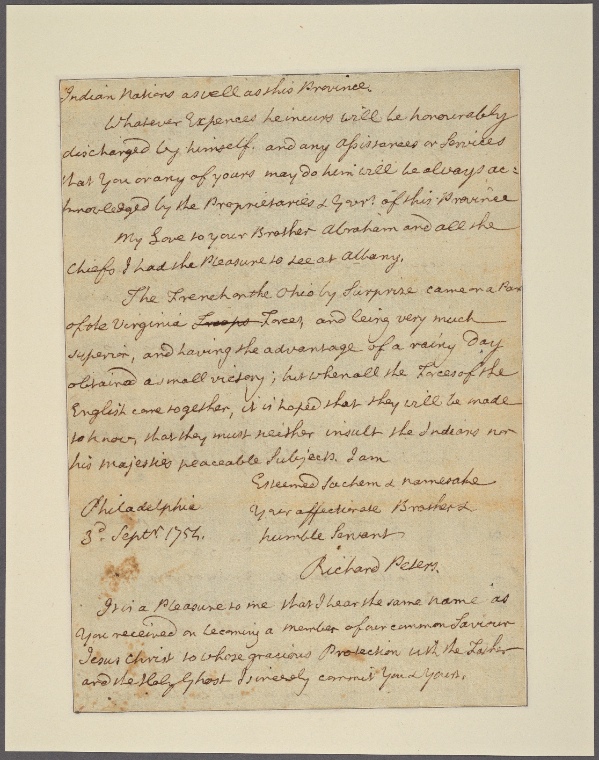 Indian Nations as well as this Province.
Whatever Expences he incurs will be honourably
discharged by himself. and any Assistances or Services
that You or any of yours may do him will be always ac=
knowledged by the Proprietaries & Govr. of this Province
My Love to your Brother Abraham and all the
Chiefs I had the Pleasure to see at Albany.
The French on the Ohio by Surprize came on a Part
of the Virginia Troops Forces, and being very much
superior, and having the advantage of a rainy Day
obtained a small victory; but when all the Forces of the
English come together, it is hoped that they will be made
to know, that they must neither insult the Indians nor
his majesties peaceable Subjects. I am
Esteemed Sachem & namesake
Your affectionate Brother &
humble Servant
Philadelphia
3d. Septr. 1754.
Richard Peters.
It is a Pleasure to me that I bear the same name as
You received on becoming a member of our common Saviour
Jesus Christ to whose gracious Protection with the Father
and the Holy Ghost I sincerely commit You & Yours.